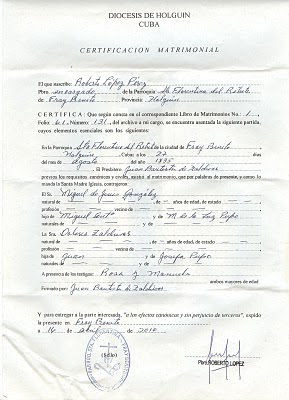 DIOCESIS DE HOLGUIN
CUBA
CERTIFICACION MATRIMONIAL
El que suscribe: Roberto López Pérez
Pbro. encargado de la Parroquia Sta Florentina del Retrete
de Fray Benito Provincia: Holguín
CERTIFICA: Que según consta en el correspondiente Libro de Matrimonios No: 1,
Folio 61, Número: 131, del archivo a mi cargo, se encuentra asentada la siguiente partida,
cuyos elementos esenciales son los siguientes:
En la Parroquia Sta Florentina del Retrete la ciudad de Fray Benito
Holguín Cuba: a los 22 días
del mes de agosto del 1895
El Presbítero Juan Bautista de Zaldívar
previos los requisitos canónicos y civiles, asistió al matrimonio, que por palabras de presente, y como lo
manda la Santa Madre Iglesia, contrajeron:
El Sr. Miguel de Jesús González
natural de — de — años de edad, de estado —
profesión — vecino de —
hijo de Miguel y M de la Luz Pupo
La Sra. Dolores Zaldívar
natural de — de — años de edad, de estado —
de profesión — vecina de —
hija de Juan y Josefa Pupo
A presencia de los testigos: Rosa y Manuela
ambos mayores de edad
Firmado por: Juan Bautista de Zaldívar
Y para entregar a la parte interesada, "a los efectos canónicos y sin perjuicio de terceros", expido
la presente en Fray Benito
a 16 de abril de 2010
(Sello)
Pbro. ROBERTO LOPEZ